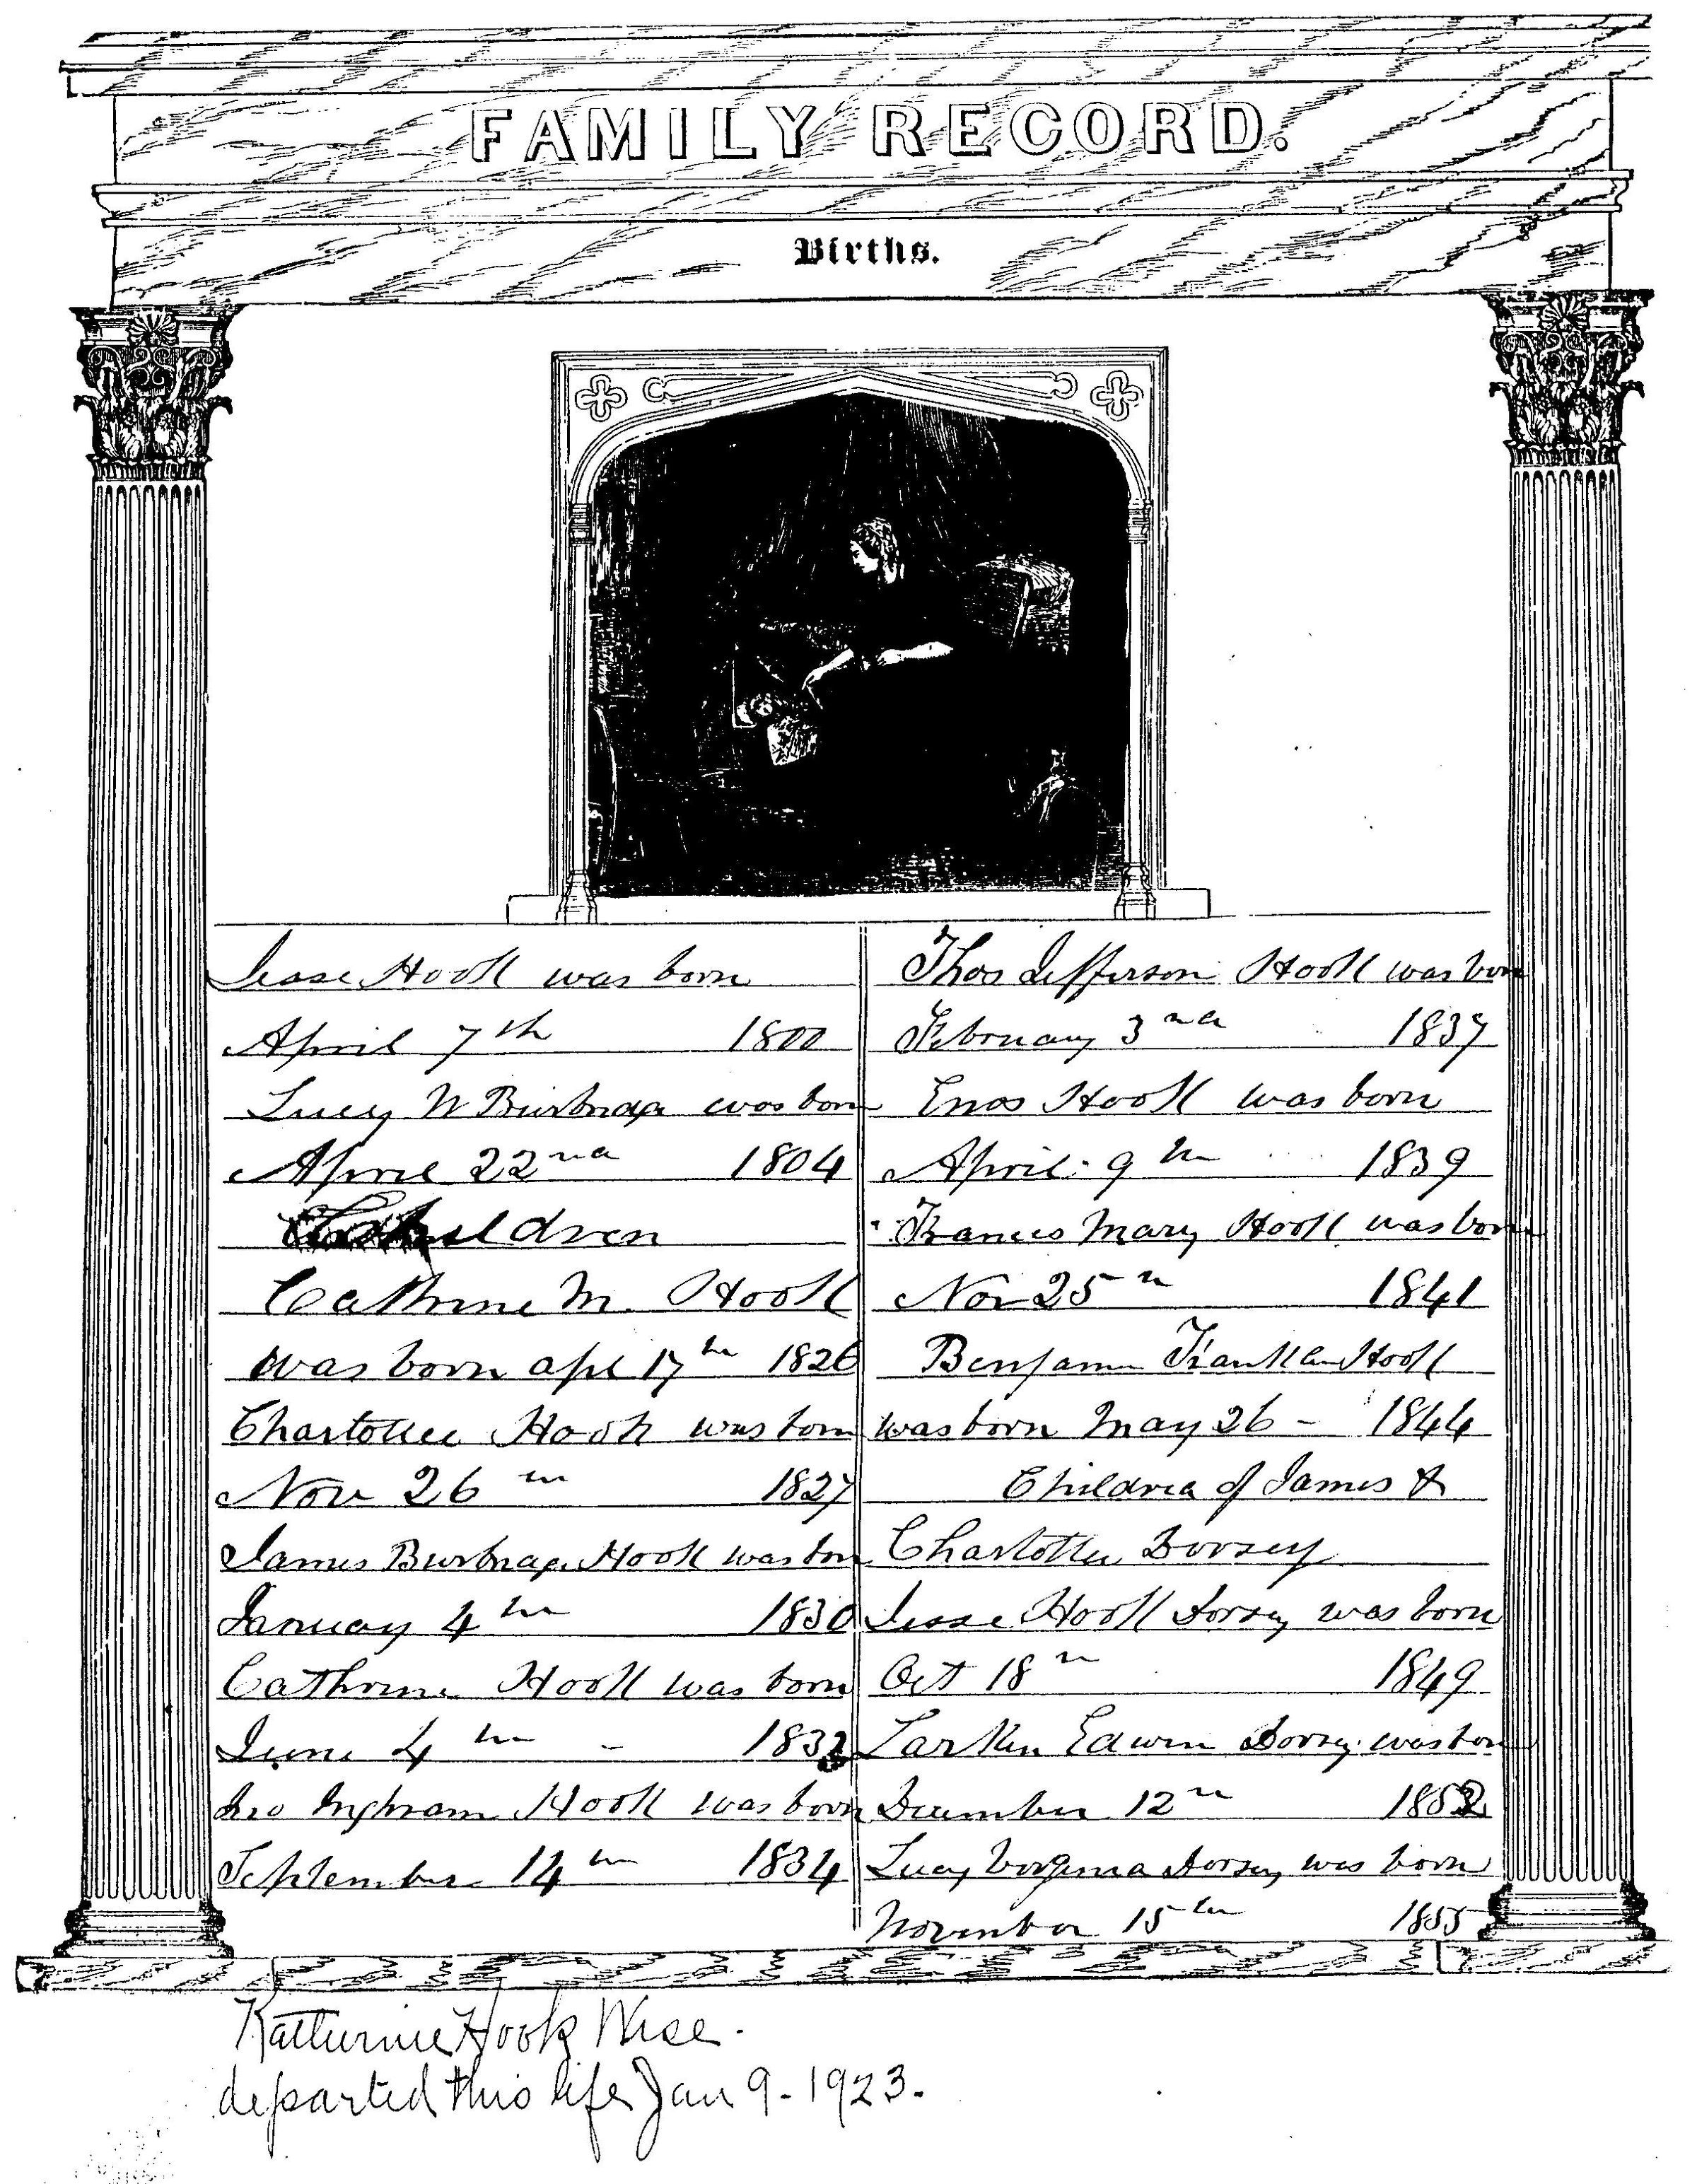 FAMILY RECORD.
Births.
Jesse Hook was born
April 7th 1800
Lucy W Burbridge was born
April 22nd 1804
Children
Cathrine M. Hook
was born apl 17th 1826
Charlottee Hook was born
Nov 26th 1827
James Burbrage Hook was born
January 4th 1830
Cathrine Hook was born
June 4th - 1832
Geo Inghram Hook was born
September 14th 1834
Thos Jefferson Hook was born
February 3nd 1837
Enos Hook was born
April 9th 1839
Frances Mary Hook was born
Nov 25th 1841
Benjamin Franklin Hook
was born May 26 - 1844
Children of James &
Charlottee Dorsey
Jesse Hook Dorsey was born
Oct 18th 1849
Larkin Edwin Dorsey was born
December 12th 1852
Lucy Virginia Dorsey was born
November 15th 1855
Katherine Hook Wise.
departed this life Jan 9-1923.